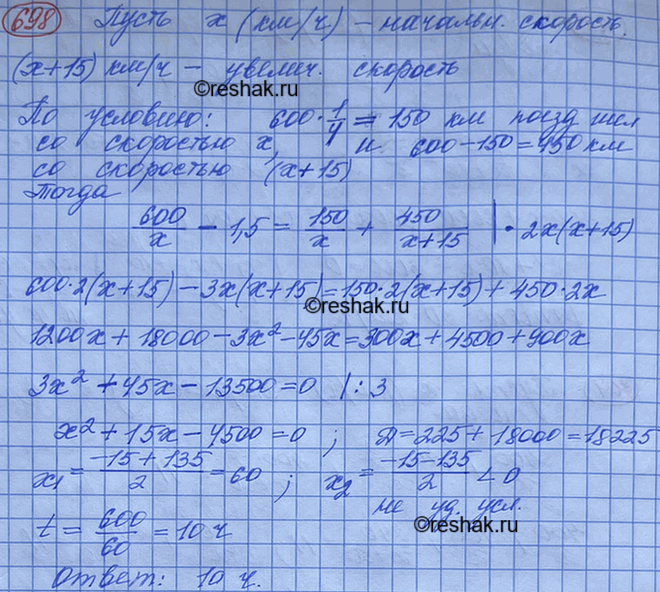 698 Пусть x (км/ч) – начальн. скорость.
(x+15) км/ч – увелич. скорость
©reshak.ru
По условию: 600·1/4 = 150 км поезд шёл
со скоростью x, и 600-150=450 км
со скоростью (x+15)
Тогда
600/x – 1,5 = 150/x + 450/(x+15) | · 2x(x+15)
600·2(x+15) – 3x(x+15)=150·2(x+15)+450·2x
©reshak.ru
1200x + 18000 – 3x² – 45x = 300x + 4500 + 900x
3x² + 45x – 13500 = 0 | : 3
x² + 15x – 4500 = 0 ; Д = 225 + 18000 = 18225
x₁ = (-15 + 135)/2 = 60 ; x₂ = (-15-135)/2 < 0
не уд. усл.
t = 600/60 = 10 ч
©reshak.ru
Ответ: 10 ч.